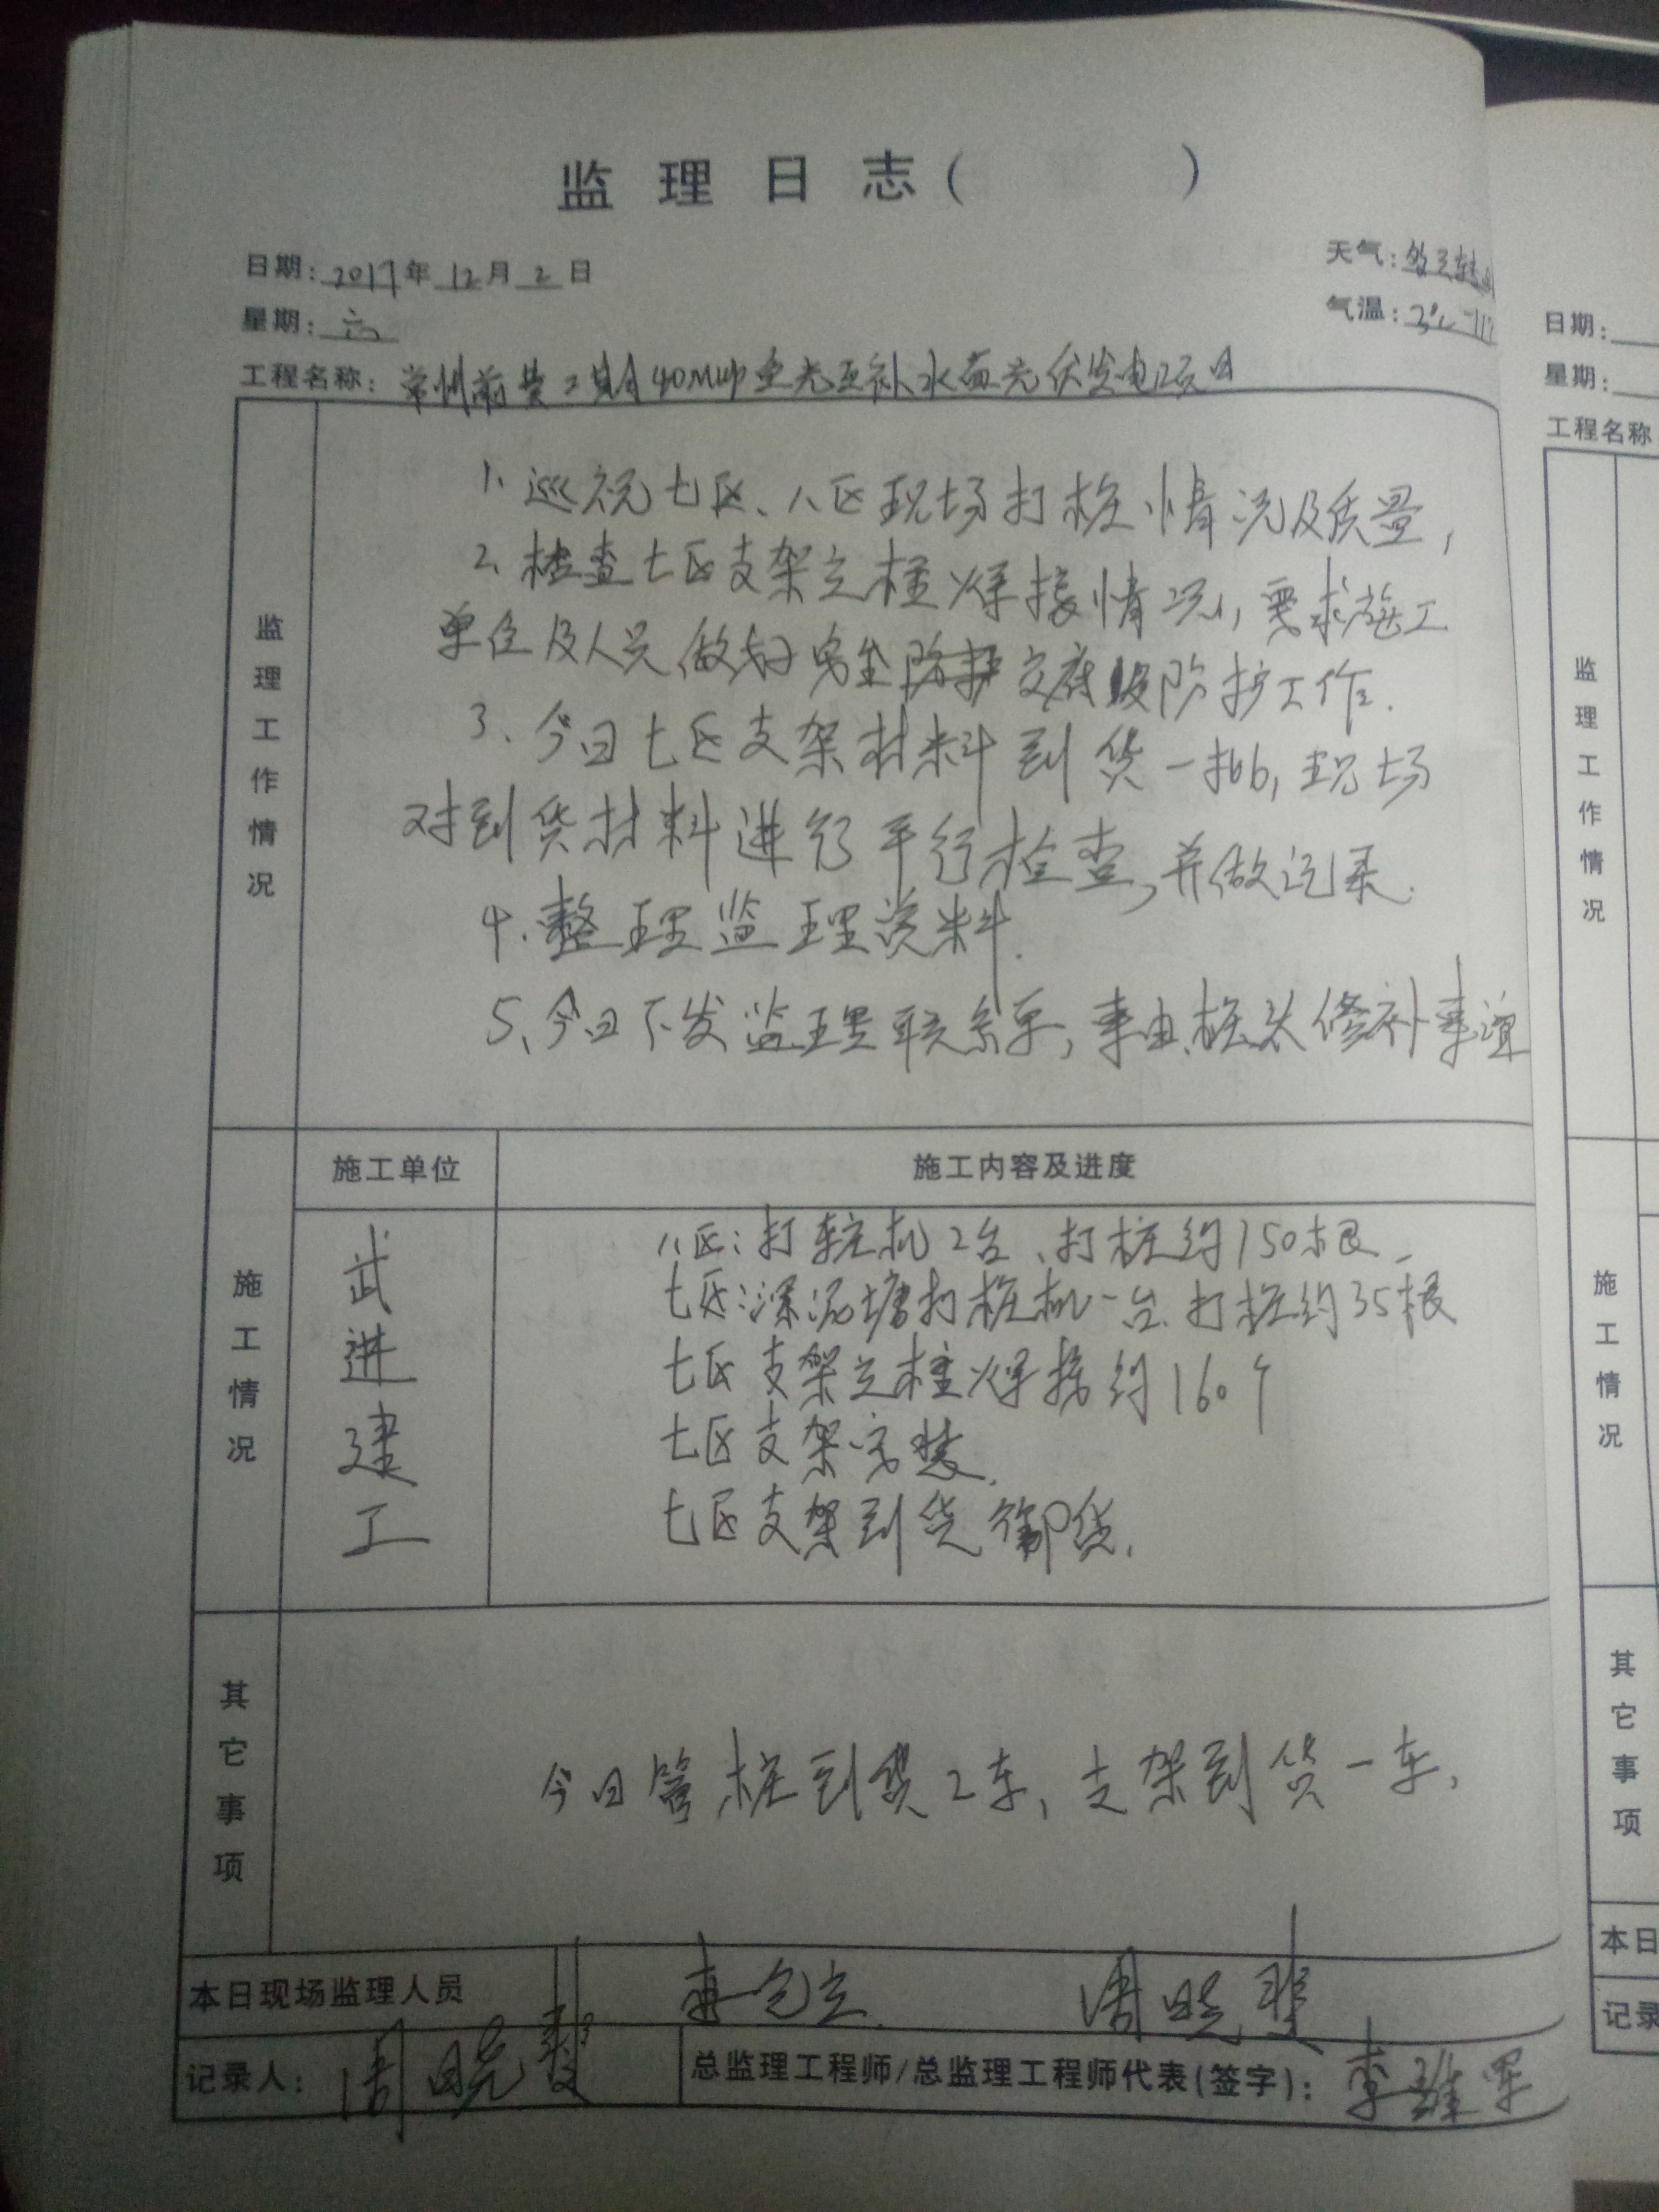 监理日志( )
日期: 2017年12月2日
天气: 多云转
星期: 六
气温: 3℃
工程名称: 常州前黄二期40MWp渔光互补水面光伏发电项目
监理工作情况
1、巡视七区、八区现场打桩情况及质量,
2、检查七区支架立柱焊接情况, 要求施工
单位及人员做好安全防护交底及防护工作.
3、今日七区支架材料到货一批, 现场
对到货材料进行平行检查, 并做记录.
4、整理监理资料.
5、今日下发监理联系单, 事由:桩头修补事谊
施工情况
施工单位 施工内容及进度
武进建工
八区:打桩机2台、打桩约150根、
七区:深泥塘打桩机一台、打桩约35根
七区支架立柱焊接约160个
七区支架安装.
七区支架到货卸货.
其它事项
今日管桩到货2车, 支架到货一车,
本日现场监理人员 周晓
记录人: 周晓
总监理工程师/总监理工程师代表(签字): 李雄军
日期:
星期:
工程名称
监理工作情况
施工情况
其它事项
本日
记录